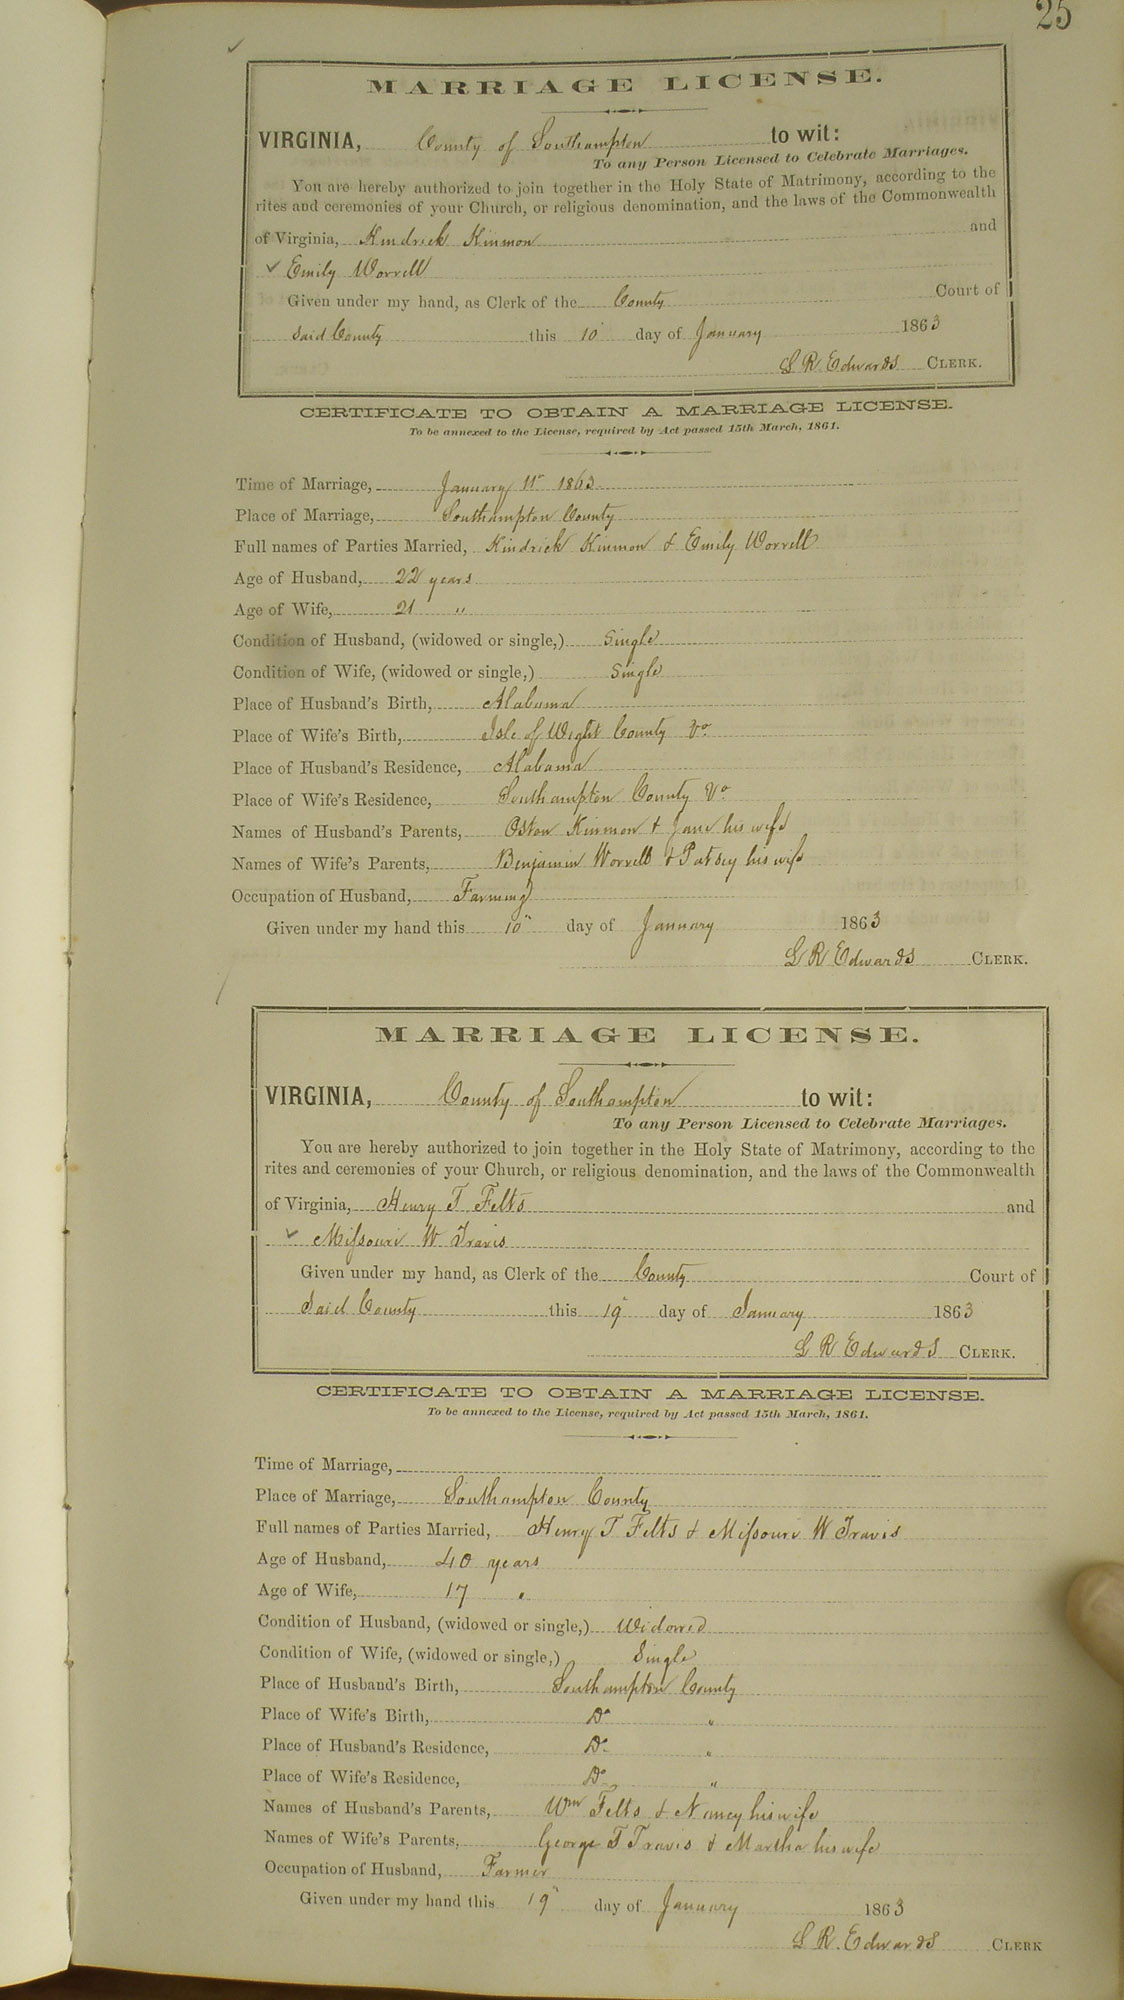 25
MARRIAGE LICENSE.
VIRGINIA, County of Southampton to wit:
To any Person Licensed to Celebrate Marriages.
You are hereby authorized to join together in the Holy State of Matrimony, according to the
rites and ceremonies of your Church, or religious denomination, and the laws of the Commonwealth
of Virginia, Kindrick Kinmon and
Emily Worrell
Given under my hand, as Clerk of the County Court of
Said County this 10" day of January 1863
L R Edwards CLERK.
CERTIFICATE TO OBTAIN A MARRIAGE LICENSE.
To be annexed to the License, required by Act passed 15th March, 1861.
Time of Marriage, January 11" 1863
Place of Marriage, Southampton County
Full names of Parties Married, Kindrick Kinmon & Emily Worrell
Age of Husband, 22 years
Age of Wife, 21 "
Condition of Husband, (widowed or single,) Single
Condition of Wife, (widowed or single,) Single
Place of Husband's Birth, Alabama
Place of Wife's Birth, Isle of Wight County Va
Place of Husband's Residence, Alabama
Place of Wife's Residence, Southampton County Va
Names of Husband's Parents, Oston Kinmon & Jane his wife
Names of Wife's Parents, Benjamin Worrell & Patsey his wife
Occupation of Husband, Farming
Given under my hand this 10" day of January 1863
L R Edwards CLERK.
MARRIAGE LICENSE.
VIRGINIA, County of Southampton to wit:
To any Person Licensed to Celebrate Marriages.
You are hereby authorized to join together in the Holy State of Matrimony, according to the
rites and ceremonies of your Church, or religious denomination, and the laws of the Commonwealth
of Virginia, Henry T Felts and
Missouri W Travis
Given under my hand, as Clerk of the County Court of
Said County this 19" day of January 1863
L R Edwards CLERK.
CERTIFICATE TO OBTAIN A MARRIAGE LICENSE.
To be annexed to the License, required by Act passed 15th March, 1861.
Time of Marriage,
Place of Marriage, Southampton County
Full names of Parties Married, Henry T Felts & Missouri W Travis
Age of Husband, 40 years
Age of Wife, 17 "
Condition of Husband, (widowed or single,) Widowed
Condition of Wife, (widowed or single,) Single
Place of Husband's Birth, Southampton County
Place of Wife's Birth, Do "
Place of Husband's Residence, Do "
Place of Wife's Residence, Do "
Names of Husband's Parents, Wm Felts & Nancy his wife
Names of Wife's Parents, George T Travis & Martha his wife
Occupation of Husband, Farmer
Given under my hand this 19" day of January 1863
L R. Edwards CLERK